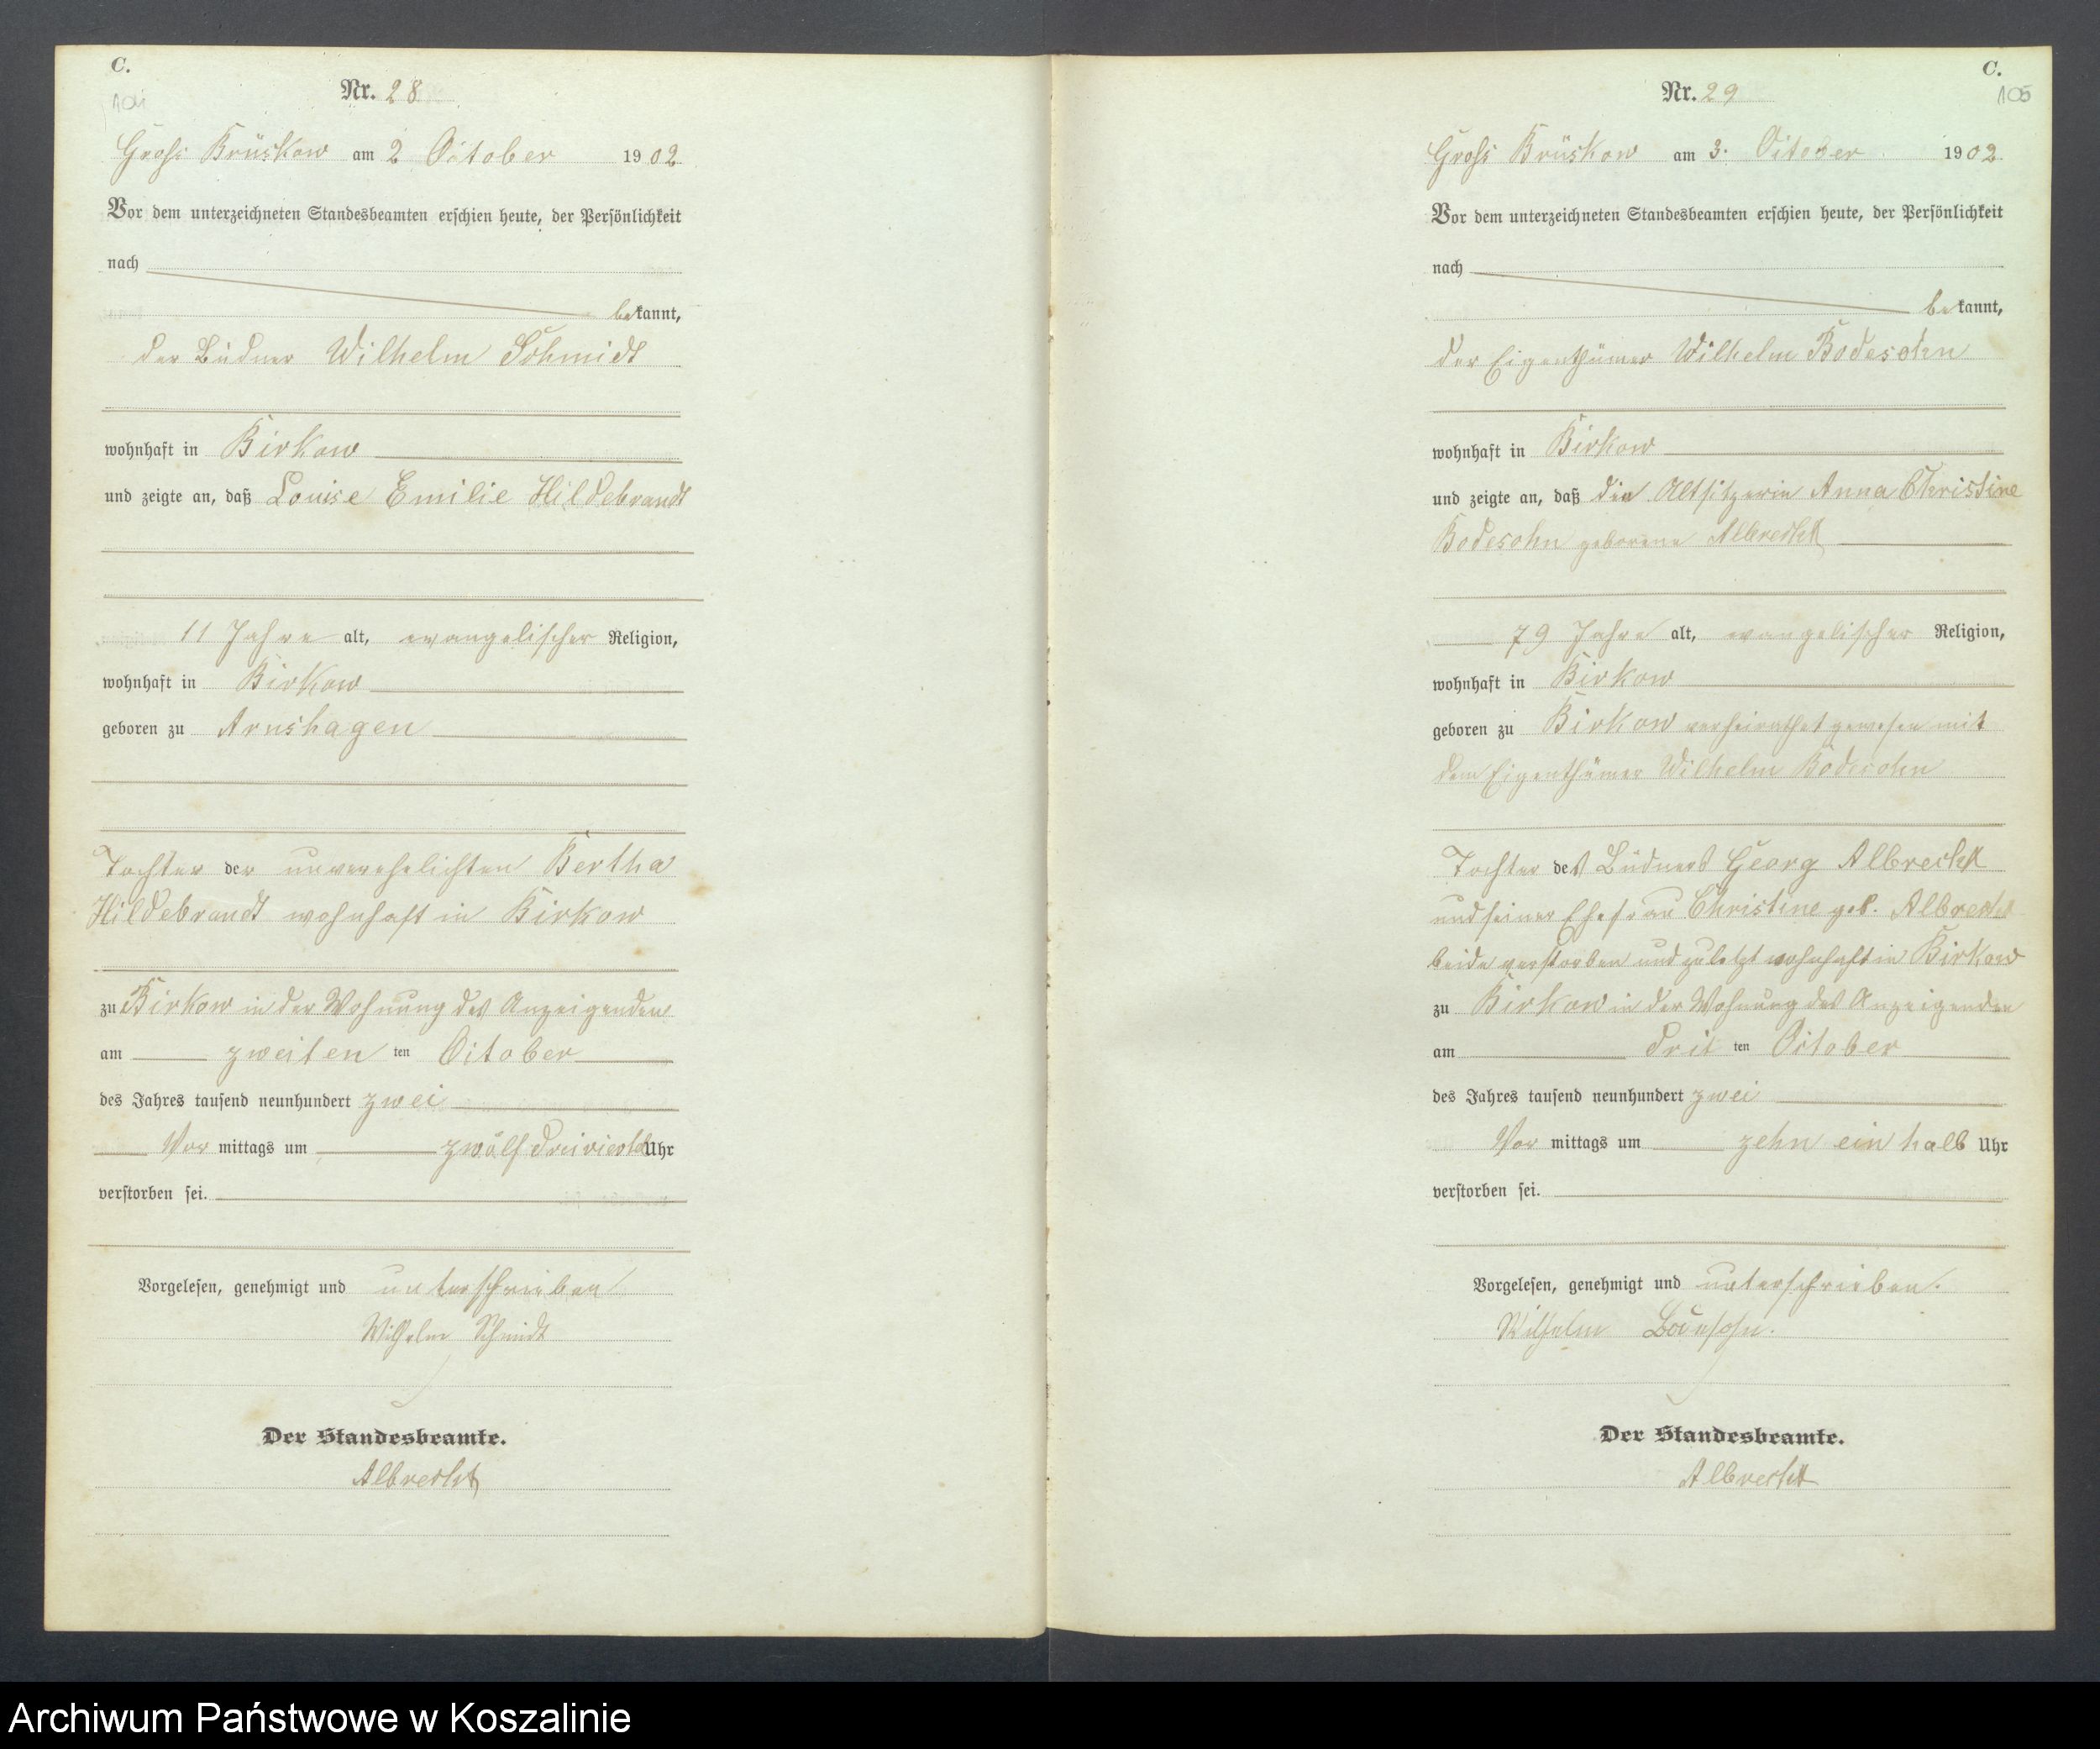 C.
Nr. 28
Gross Brüskow am 2 October 1902
Vor dem unterzeichneten Standesbeamten erschien heute, der Persönlichkeit
nach
bekannt,
der Büdner Wilhelm Schmidt
wohnhaft in Birkow
und zeigte an, daß Louise Emilie Hildebrandt
11 Jahre alt, evangelischer Religion,
wohnhaft in Birkow
geboren zu Arnshagen
Tochter der unverehelichten Bertha
Hildebrandt wohnhaft in Birkow
zu Birkow in der Wohnung des Anzeigenden
am zweiten ten October
des Jahres tausend neunhundert zwei
Vor mittags um zwölf dreiviertel Uhr
verstorben sei.
Vorgelesen, genehmigt und unterschrieben
Wilhelm Schmidt
Der Standesbeamte.
Albrecht
C.
105
Nr. 29
Gross Brüskow am 3. October 1902.
Vor dem unterzeichneten Standesbeamten erschien heute, der Persönlichkeit
nach
bekannt,
der Eigenthümer Wilhelm Bodesohn
wohnhaft in Birkow
und zeigte an, daß die Altsitzerin Anna Christine
Bodesohn geborene Albrecht
79 Jahre alt, evangelischer Religion,
wohnhaft in Birkow
geboren zu Birkow verheirathet gewesen mit
dem Eigenthümer Wilhelm Bodesohn
Tochter des Büdners Georg Albrecht
und seiner Ehefrau Christine geb. Albrecht
beide verstorben und zuletzt wohnhaft in Birkow
zu Birkow in der Wohnung des Anzeigenden
am drit ten October
des Jahres tausend neunhundert zwei
Vor mittags um zehn ein halb Uhr
verstorben sei.
Vorgelesen, genehmigt und unterschrieben.
Wilhelm Bodesohn.
Der Standesbeamte.
Albrecht
Archiwum Państwowe w Koszalinie